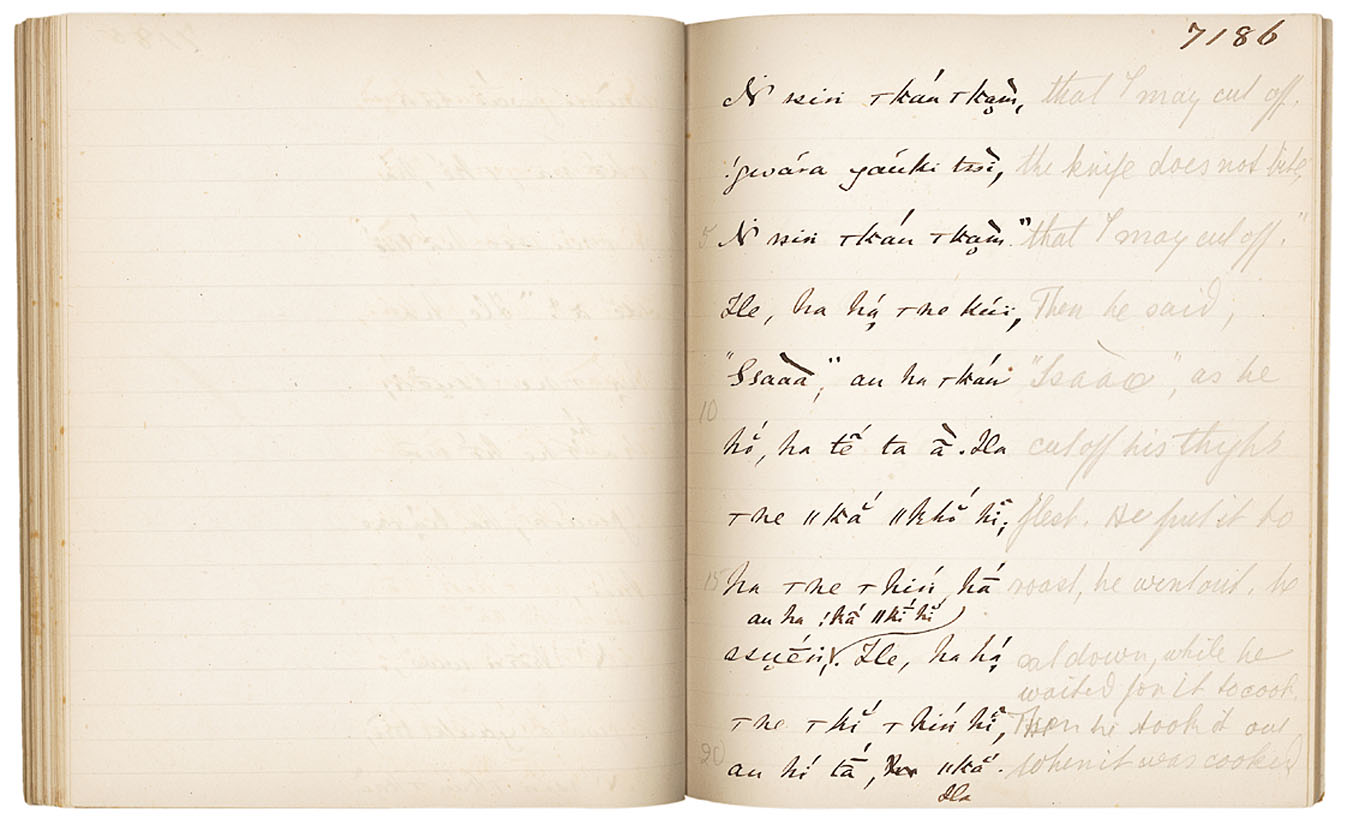 7186
N ssin ⊤kán ⊤kạm̀, that I may cut off.
!gwára gaúki tssì, the knife does not bite,
5 N ssin ⊤kán ⊤kạm̀." that I may cut off."
He, ha hạ́ ⊤ne kúi, Then he said,
"Ssàaa," au ha ⊤kán "Ssàaa", as he
10
hŏ́, ha tḗ ta ā̀. Ha cut off his thigh's
⊤ne ǁkắ ǁkhŏ́ hĭ; flesh. He put it to
15 ha ⊤ne ⊤hiń, hā́ roast, he went out, he
au ha !kā́ ǁkī́ hĭ
ssụēń,. He, ha hạ́ sat down, while he
waited for it to cook.
⊤ne ⊤kĭ́ ⊤hiń hĭ, Then he took it out
20 au hí tā́, ǁkắ. when it was cooked
Ha